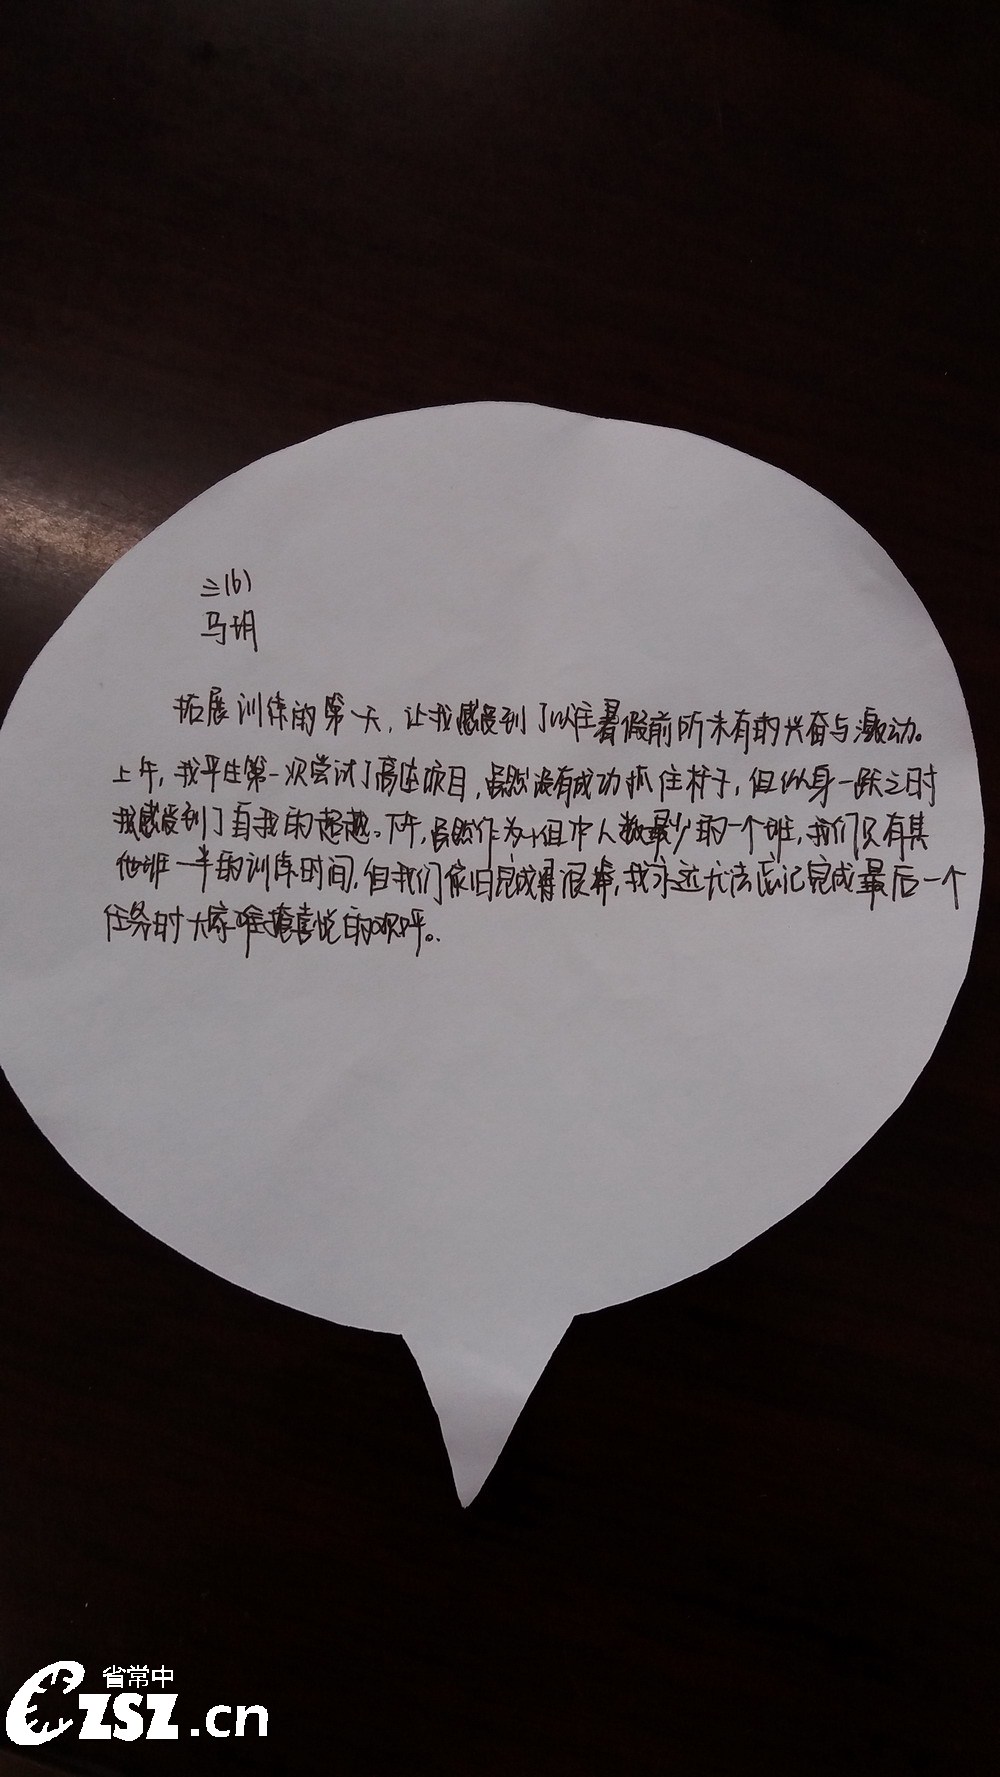 三(6)
马玥
拓展训练的第一天，让我感受到了以往暑假前所未有的兴奋与激动。
上午，我平生第一次尝试了高空项目，虽然没有成功抓住杆子，但纵身一跃之时
我感受到了自我的超越。下午，虽然作为小组中人数最少的一个班，我们只有其
他班一半的训练时间，但我们依旧完成得很棒，我永远无法忘记完成最后一个
任务时大家难掩喜悦的欢呼。
省常中
CZSZ.cn